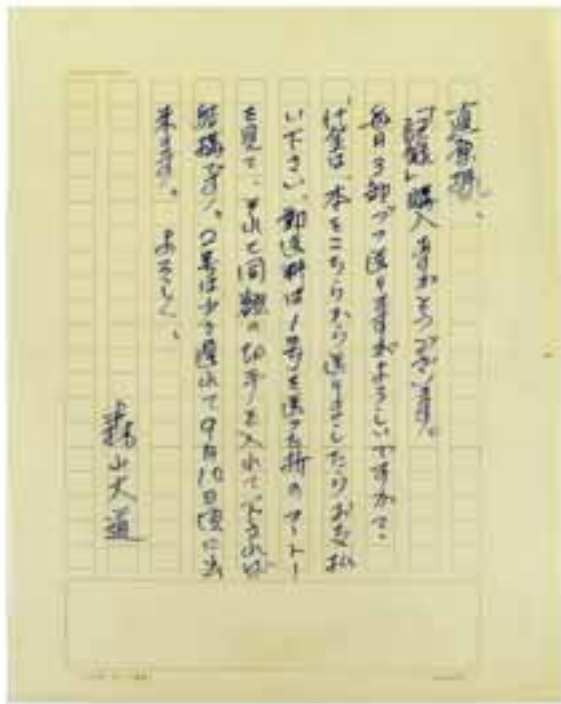 「記録」購入ありがとうございます。
毎月3部づつ送りますがよろしいですか?
代金は、本をこちらから送りましたらお支払
い下さい。郵送料は1号を送った折の
を見て、それと同額の切手を入れて下されば
結構です。2号は少し遅れて9月10日頃に出
来ます。よろしく、
森山大道